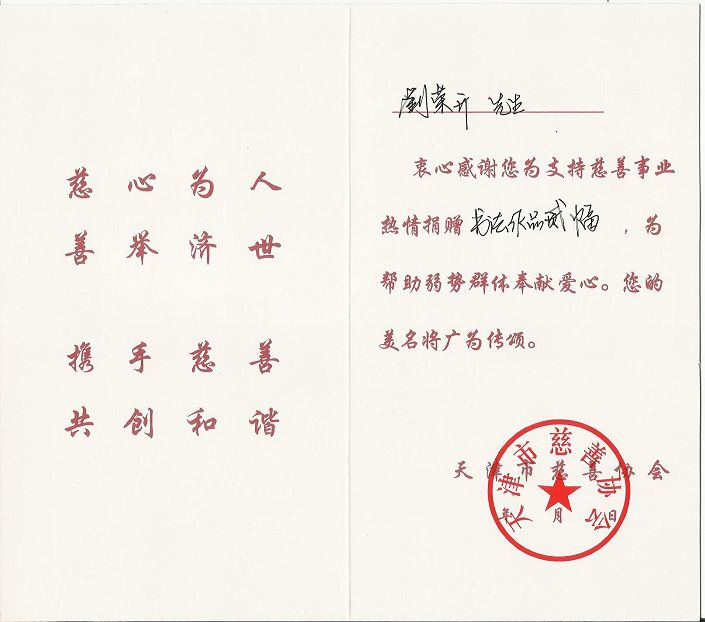 慈心为人
善举济世
携手慈善
共创和谐
劉荣升 先生
衷心感谢您为支持慈善事业
热情捐赠书法作品贰幅，为
帮助弱势群体奉献爱心。您的
美名将广为传颂。
天津市慈善协会
年 月 日
天津市慈善协会